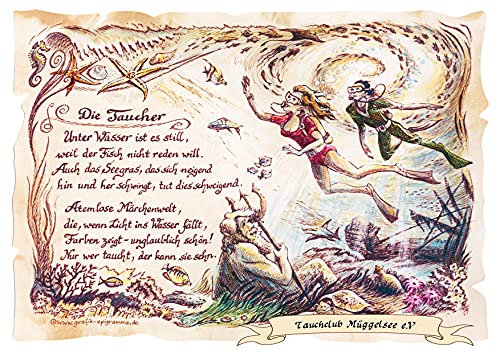 Die Taucher
Unter Wasser ist es still,
weil der Fisch nicht reden will.
Auch das Seegras, das sich neigend
hin und her schwingt, tut dies schweigend.
Atemlose Märchenwelt,
die, wenn Licht ins Wasser fällt,
Farben zeigt - unglaublich schön!
Nur wer taucht, der kann sie sehn.
@www.grafik-epigramme.de
Tauchclub Müggelsee e.V